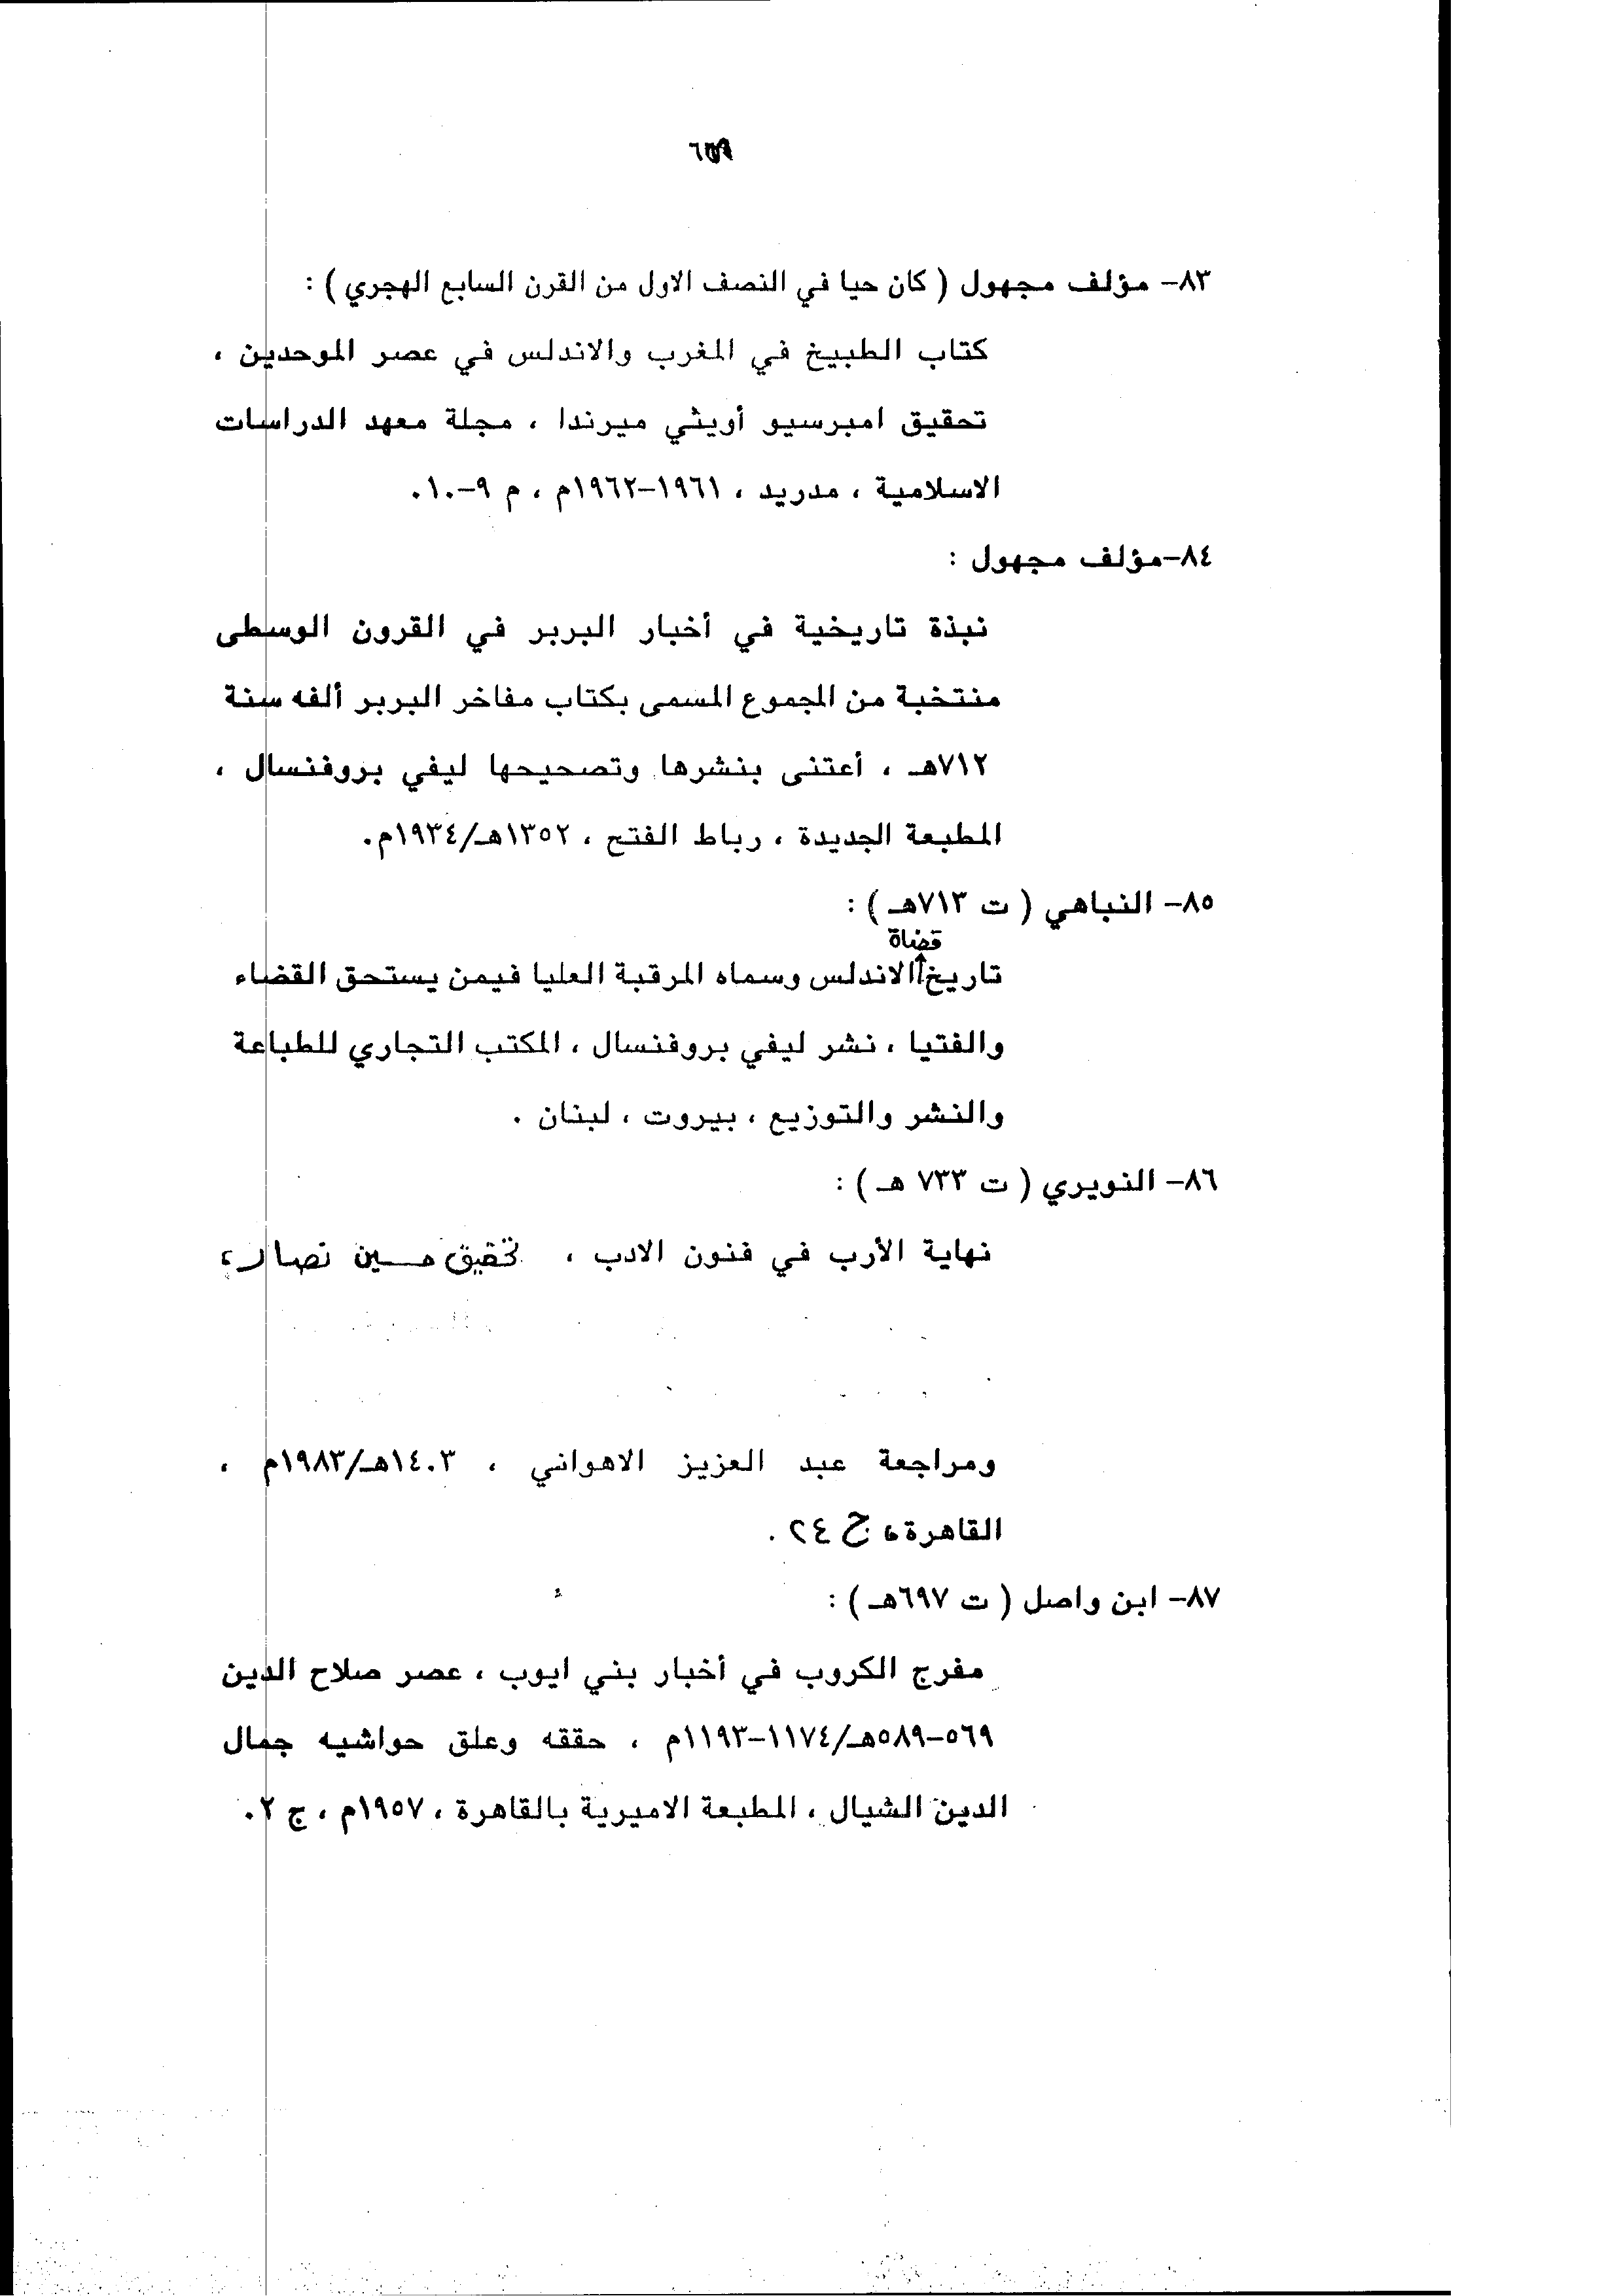 ٨٣- مؤلف مجهول ( كان حيا في النصف الاول من القرن السابع الهجري ) :
كتاب الطبيخ في المغرب والاندلس في عصر الموحدين ،
تحقيق امبرسيو أويثي ميرندا ، مجلة معهد الدراسات
الاسلامية ، مدريد ، ١٩٦١-١٩٦٢م ، م ٩-١٠.
٨٤-مؤلف مجهول :
نبذة تاريخية في أخبار البربر في القرون الوسطى
منتخبة من المجموع المسمى بكتاب مفاخر البربر ألفه سنة
٧١٢هـ ، أعتنى بنشرها وتصحيحها ليفي بروفنسال ،
المطبعة الجديدة ، رباط الفتح ، ١٣٥٢هـ/١٩٣٤م.
٨٥- النباهي ( ت ٧١٣هـ ) :
قضاة
تاريخ الاندلس وسماه المرقبة العليا فيمن يستحق القضاء
والفتيا ، نشر ليفي بروفنسال ، المكتب التجاري للطباعة
والنشر والتوزيع ، بيروت ، لبنان .
٨٦- النويري ( ت ٧٣٣ هـ ) :
نهاية الأرب في فنون الادب ، تحقيق حسين نصار ،
ومراجعة عبد العزيز الاهواني ، ١٤٠٣هـ/١٩٨٣م ،
القاهرة ، ج ٢٤ .
٨٧- ابن واصل ( ت ٦٩٧هـ ) :
مفرج الكروب في أخبار بني ايوب ، عصر صلاح الدين
٥٦٩-٥٨٩هـ/١١٧٤-١١٩٣م ، حققه وعلق حواشيه جمال
الدين الشيال ، المطبعة الاميرية بالقاهرة ، ١٩٥٧م ، ج ٢.